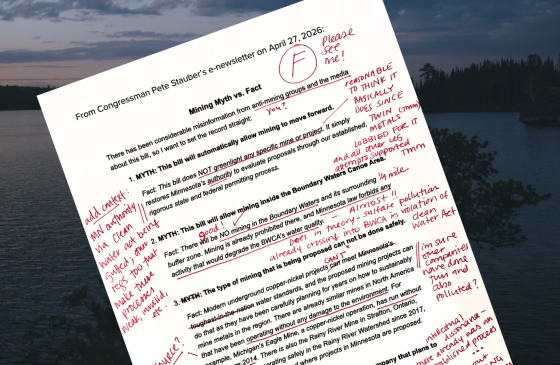 From Congressman Pete Stauber's e-newsletter on April 27, 2026:
F
Please
see
me!
Mining Myth vs. Fact
There has been considerable misinformation from anti-mining groups and the media
about this bill, so I want to set the record straight:
you?
1. MYTH: This bill will automatically allow mining to move forward.
Fact: This bill does NOT greenlight any specific mine or project. It simply
restores Minnesota's authority to evaluate proposals through our established,
rigorous state and federal permitting process.
REASONABLE
TO THINK IT
BASICALLY
DOES SINCE
TWIN (TMM)
METALS
LOBBIED FOR IT
and all other leg
attempts supported
TMM
2. MYTH: This bill will allow mining inside the Boundary Waters Canoe Area.
Good!
Fact: There will be NO mining in the Boundary Waters and its surrounding
1/4 mile
buffer zone. Mining is already prohibited there, and Minnesota law forbids any
activity that would degrade the BWCA's water quality.
Almost!!
Does in theory - sulfate pollution
already crossing into BWCA in violation of
clean
Water Act
add context:
MN authority
via Clean
Water act being
gutted; our 2
legs too that
make these
processes
weak, invalid,
etc.
3. MYTH: The type of mining that is being proposed can not be done safely.
CAN'T
Fact: Modern underground copper-nickel projects can meet Minnesota's
toughest-in-the-nation water standards, and the proposed mining projects can
do that as they have been carefully planning for years on how to sustainably
mine metals in the region. There are already similar mines in North America
that have been operating without any damage to the environment. For
example, Michigan's Eagle Mine, a copper-nickel operation, has run without
2014. There is also the Rainy River Mine in Stratton, Ontario,
operating safely in the Rainy River Watershed since 2017,
and where projects in Minnesota are proposed.
i'm sure
other
companies
have done
this and
also
polluted?
source?
more already has an